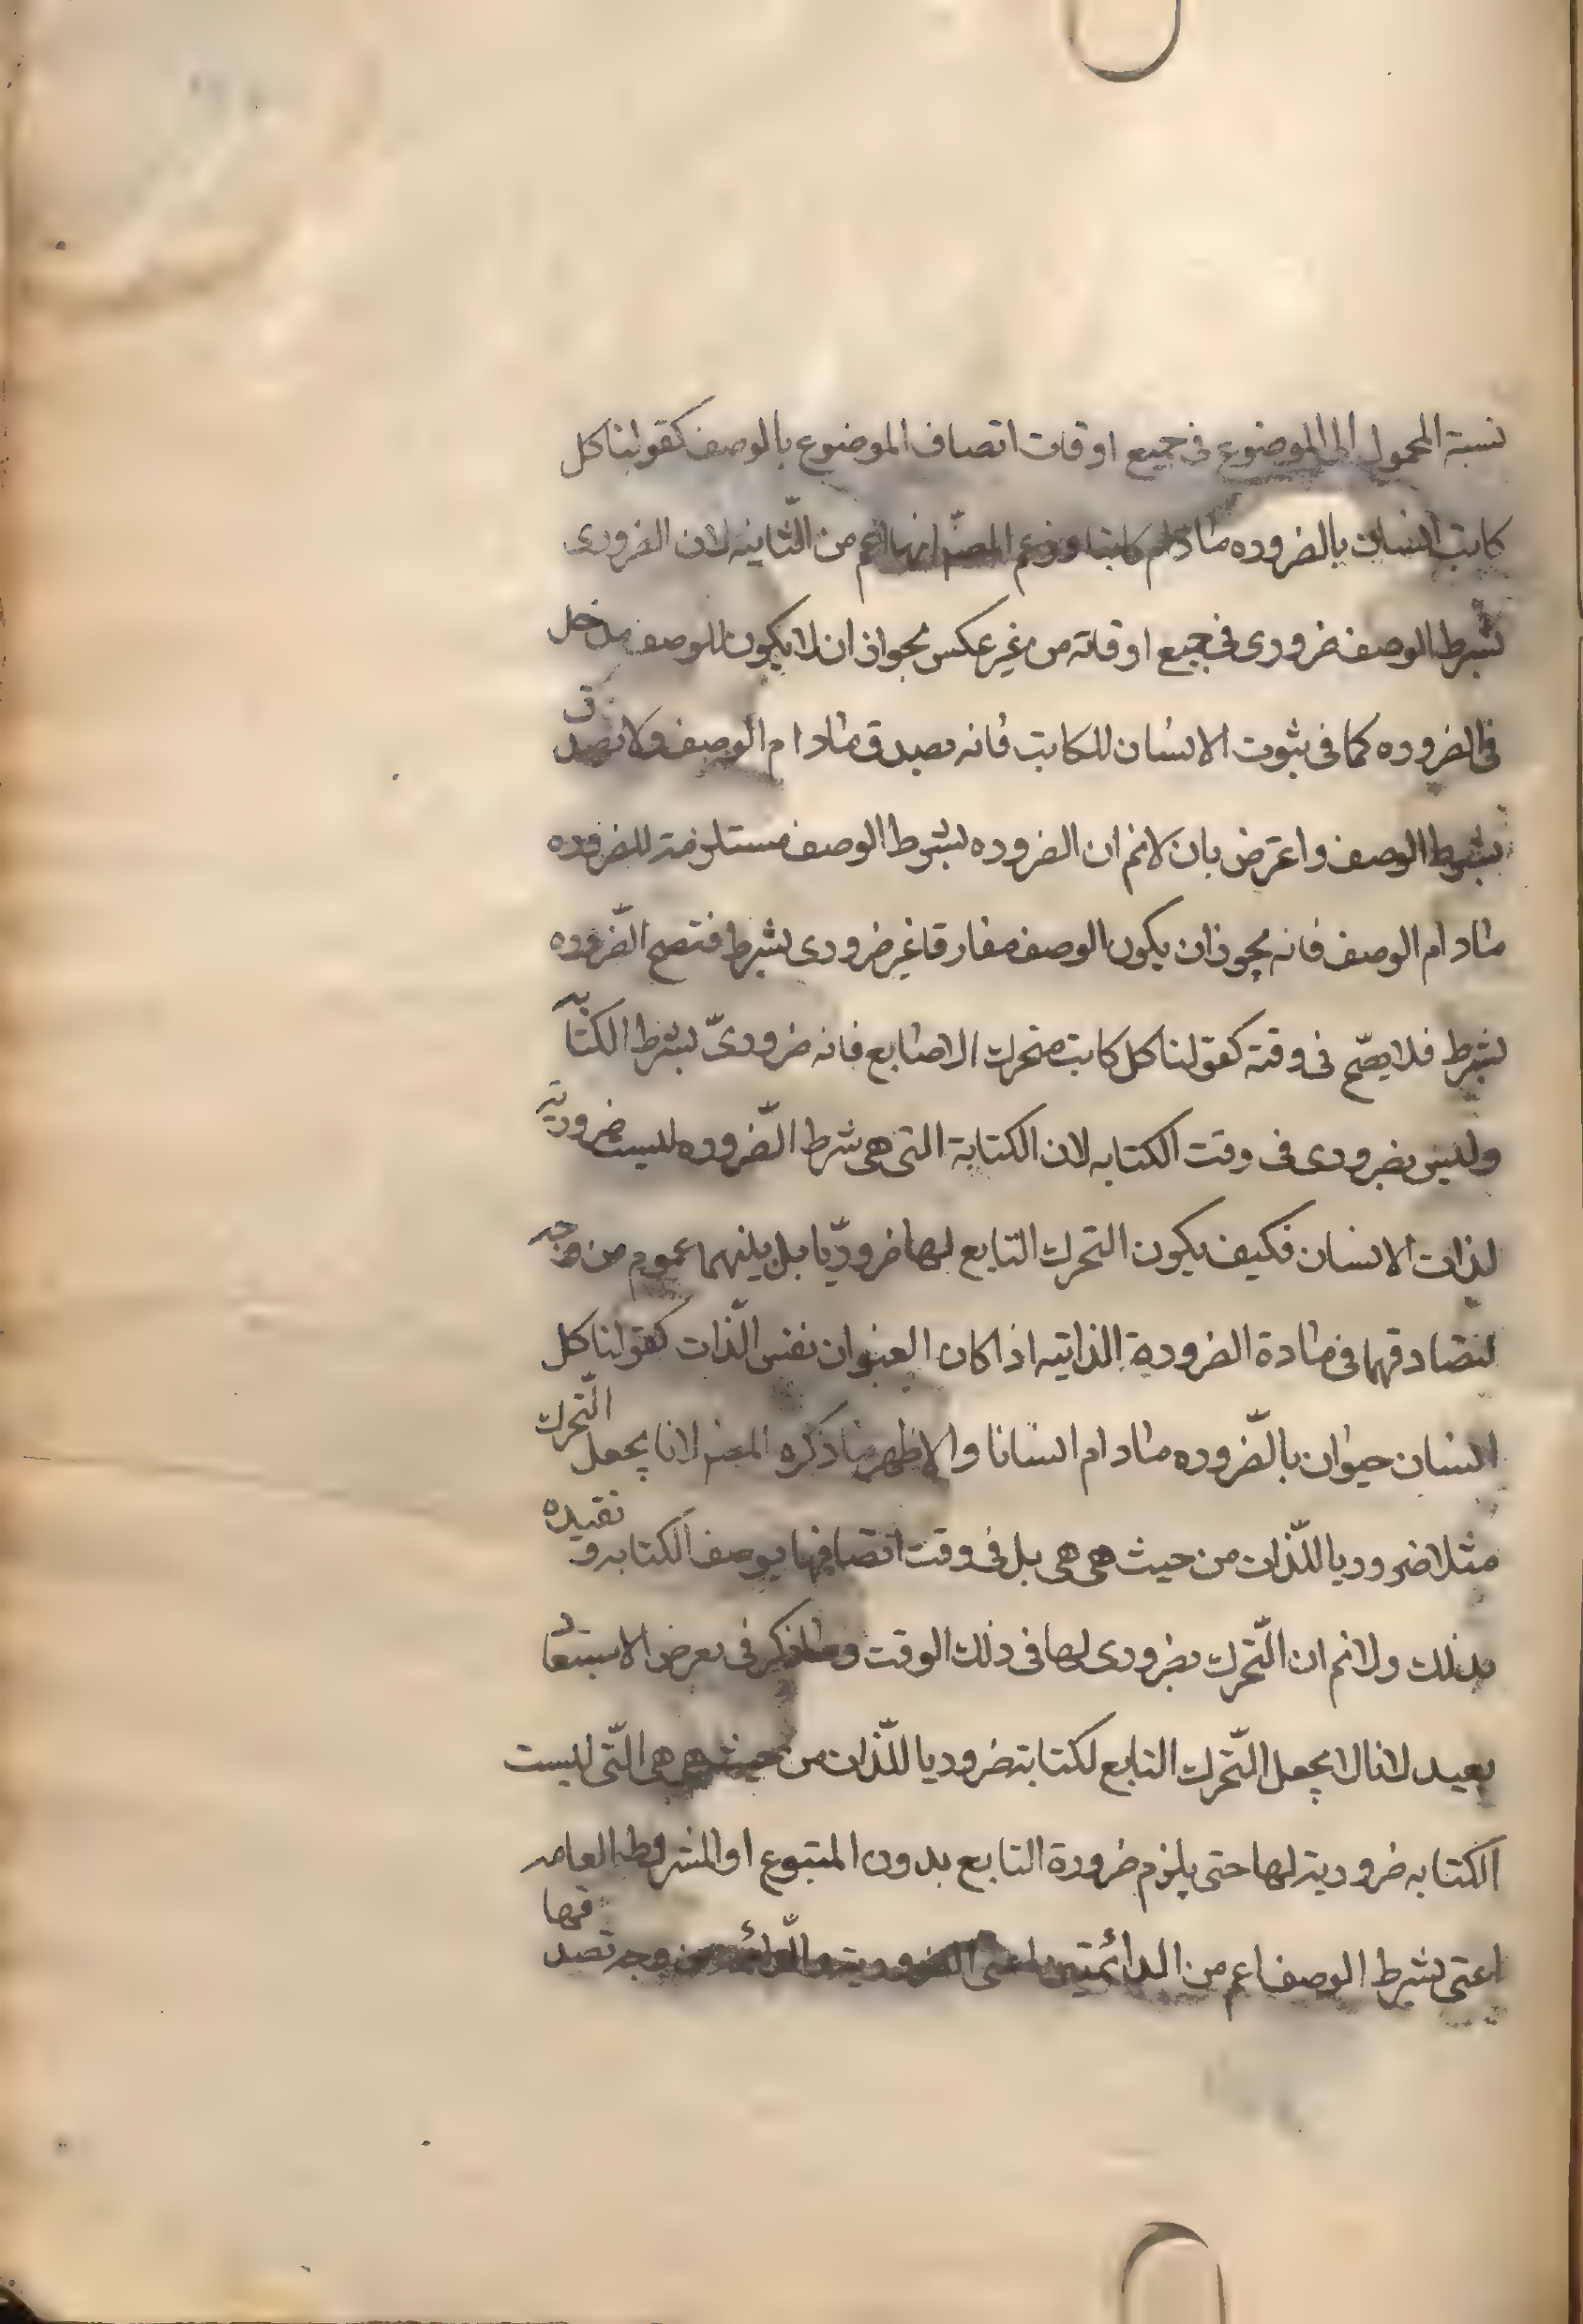 نسبة المحمول الى الموضوع فى جميع اوقات اتصاف الموضوع بالوصف كقولنا كل
كاتب انسان بالضروره مادام كاتبا وزعم المصـ انها اعم من الثّانيه لان الضرورى
بشرط الوصف ضرورى فى جميع اوقاته من غير عكس لجواز ان لا يكون للوصف مدخل
فى الضروره كما فى ثبوت الانسان للكاتب فانه يصدق مادام الوصف ولا تصدق
بشرط الوصف واعترض بان لانم ان الضروره بشرط الوصف مستلزمة للضروره
مادام الوصف فانه يجوز ان يكون الوصف مفارقا غير ضرورى بشرط فتصح الضّروره
بشرط فلا يصّح فى وقته كقولنا كل كاتب متحرك الاصابع فانه ضرورىّ بشرط الكتابه
وليس بضرورى فى وقت الكتابه لان الكتابة التى هى شرط الضّروره ليست ضرورية
لذات الانسان فكيف يكون التحرك التابع لها ضروريّا بل بينهما عموم من وجه
لتصادقهما فى مادة الضرورة الذاتيه اذا كان العنوان نفس الذّات كقولنا كل
انسان حيوان بالضّروره مادام انسانا والاظهر ما ذكره المصنـ لانا نجعل التّحرك
مثلا ضروريا للذّات من حيث هى هى بل فى وقت اتصافها بوصف الكتابه و نقيده
بذلك ولانم ان التّحرك بضرورى لها فى ذلك الوقت وما ذكر فى معرض الاستبعاد
بعيد لانا لا نجعل التّحرك التابع لكتابته ضروريا للذّات من حيث هى هى التّى ليست
الكتابه ضرورية لها حتى يلزم ضرورة التابع بدون المتبوع او المشروطه العامه
اعنى بشرط الوصف اعم من الدائمتين اعنى الضرورية والدّائمه من وجه تصدقها